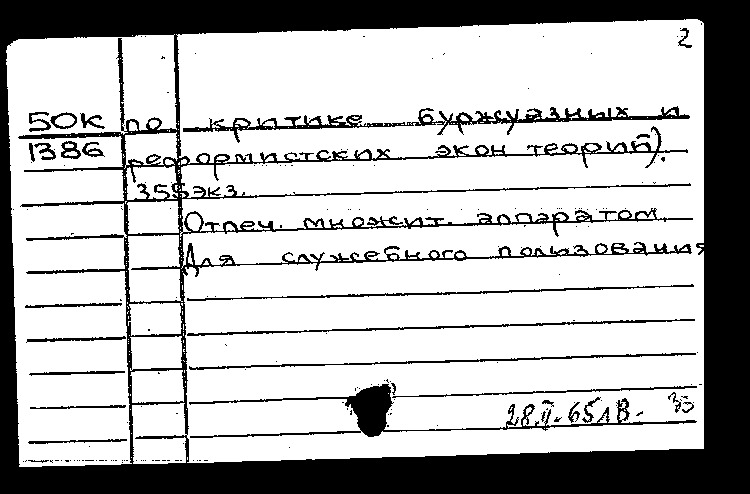 2
50К по критике буржуазных и
1386 реформистских экон теорий).
355экз.
Отпеч. множит. аппаратом.
Для служебного пользования
28.II.65